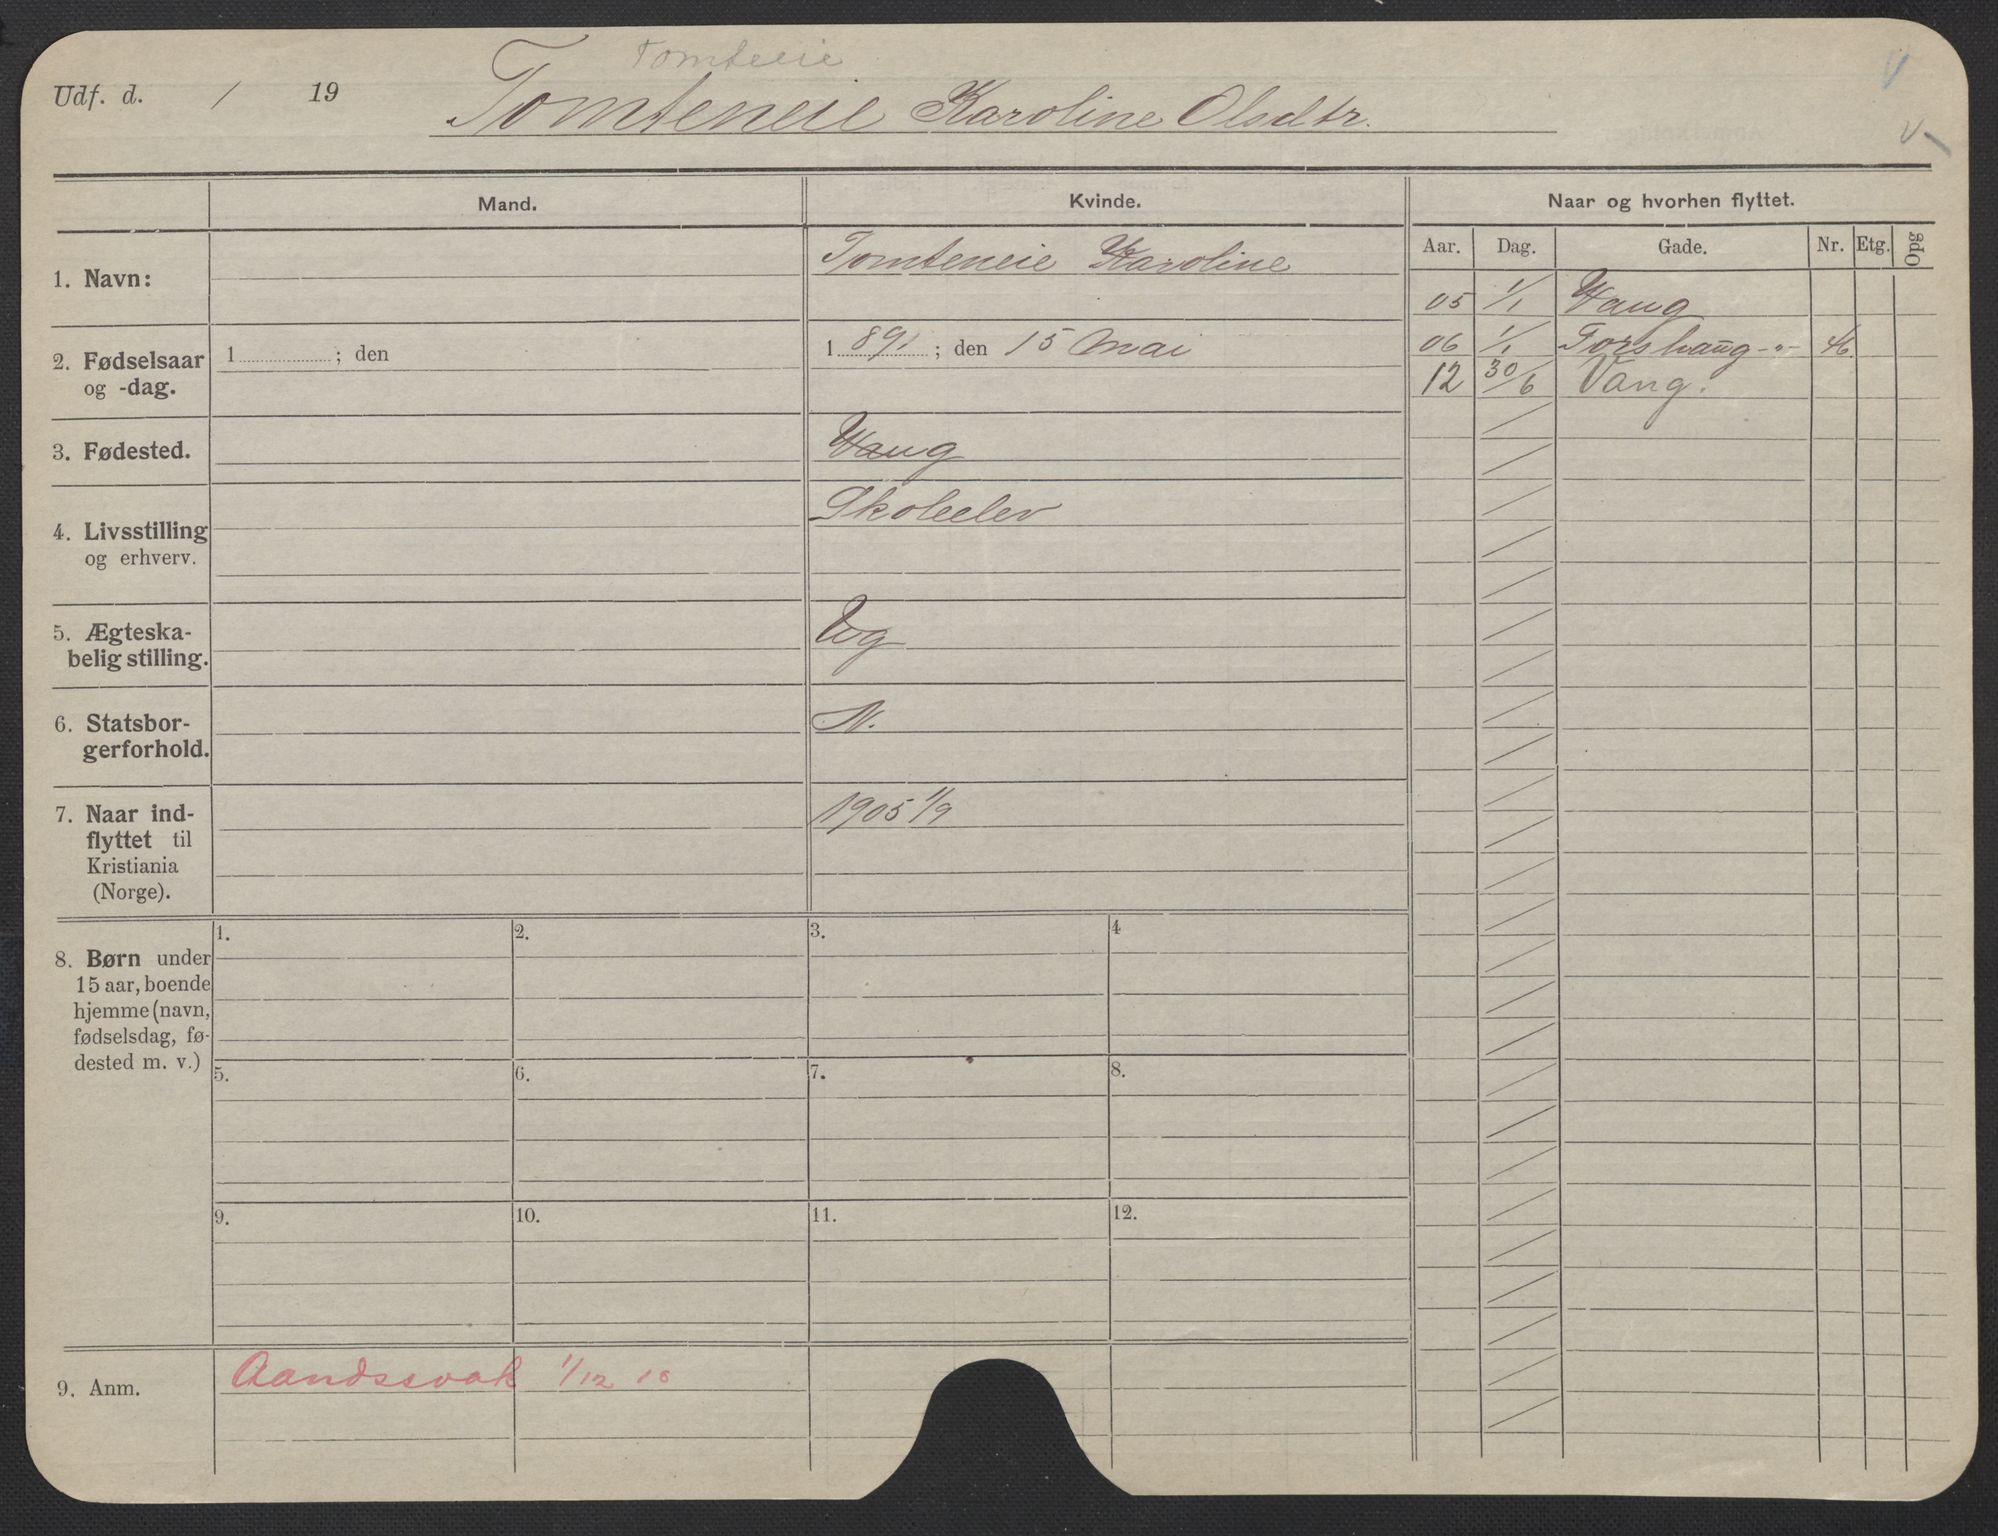 Tomteeie
Udf. d. / 19 Tomteneie Karoline Olsdtr. V
V
Mand. Kvinde. Naar og hvorhen flyttet.
Aar. Dag. Gade. Nr. Etg. Opg
1. Navn: Tomteneie Karoline
05 1/1 Vang
2. Fødselsaar 1 ; den 1 891 ; den 15 Mai 06 1/1 Torshaug -"-
og -dag. 12 30/6 Vang.
3. Fødested. Vang
4. Livsstilling Skoleelev
og erhverv.
5. Ægteska- Ug
belig stilling.
6. Statsbor- N.
gerforhold.
7. Naar ind- 1905 1/9
flyttet til
Kristiania
(Norge).
1. 2. 3. 4
8. Børn under
15 aar, boende
hjemme (navn,
fødselsdag, fø-
dested m. v.)
5. 6. 7. 8.
9. 10. 11. 12.
9. Anm. Aandssvak 1/12 10